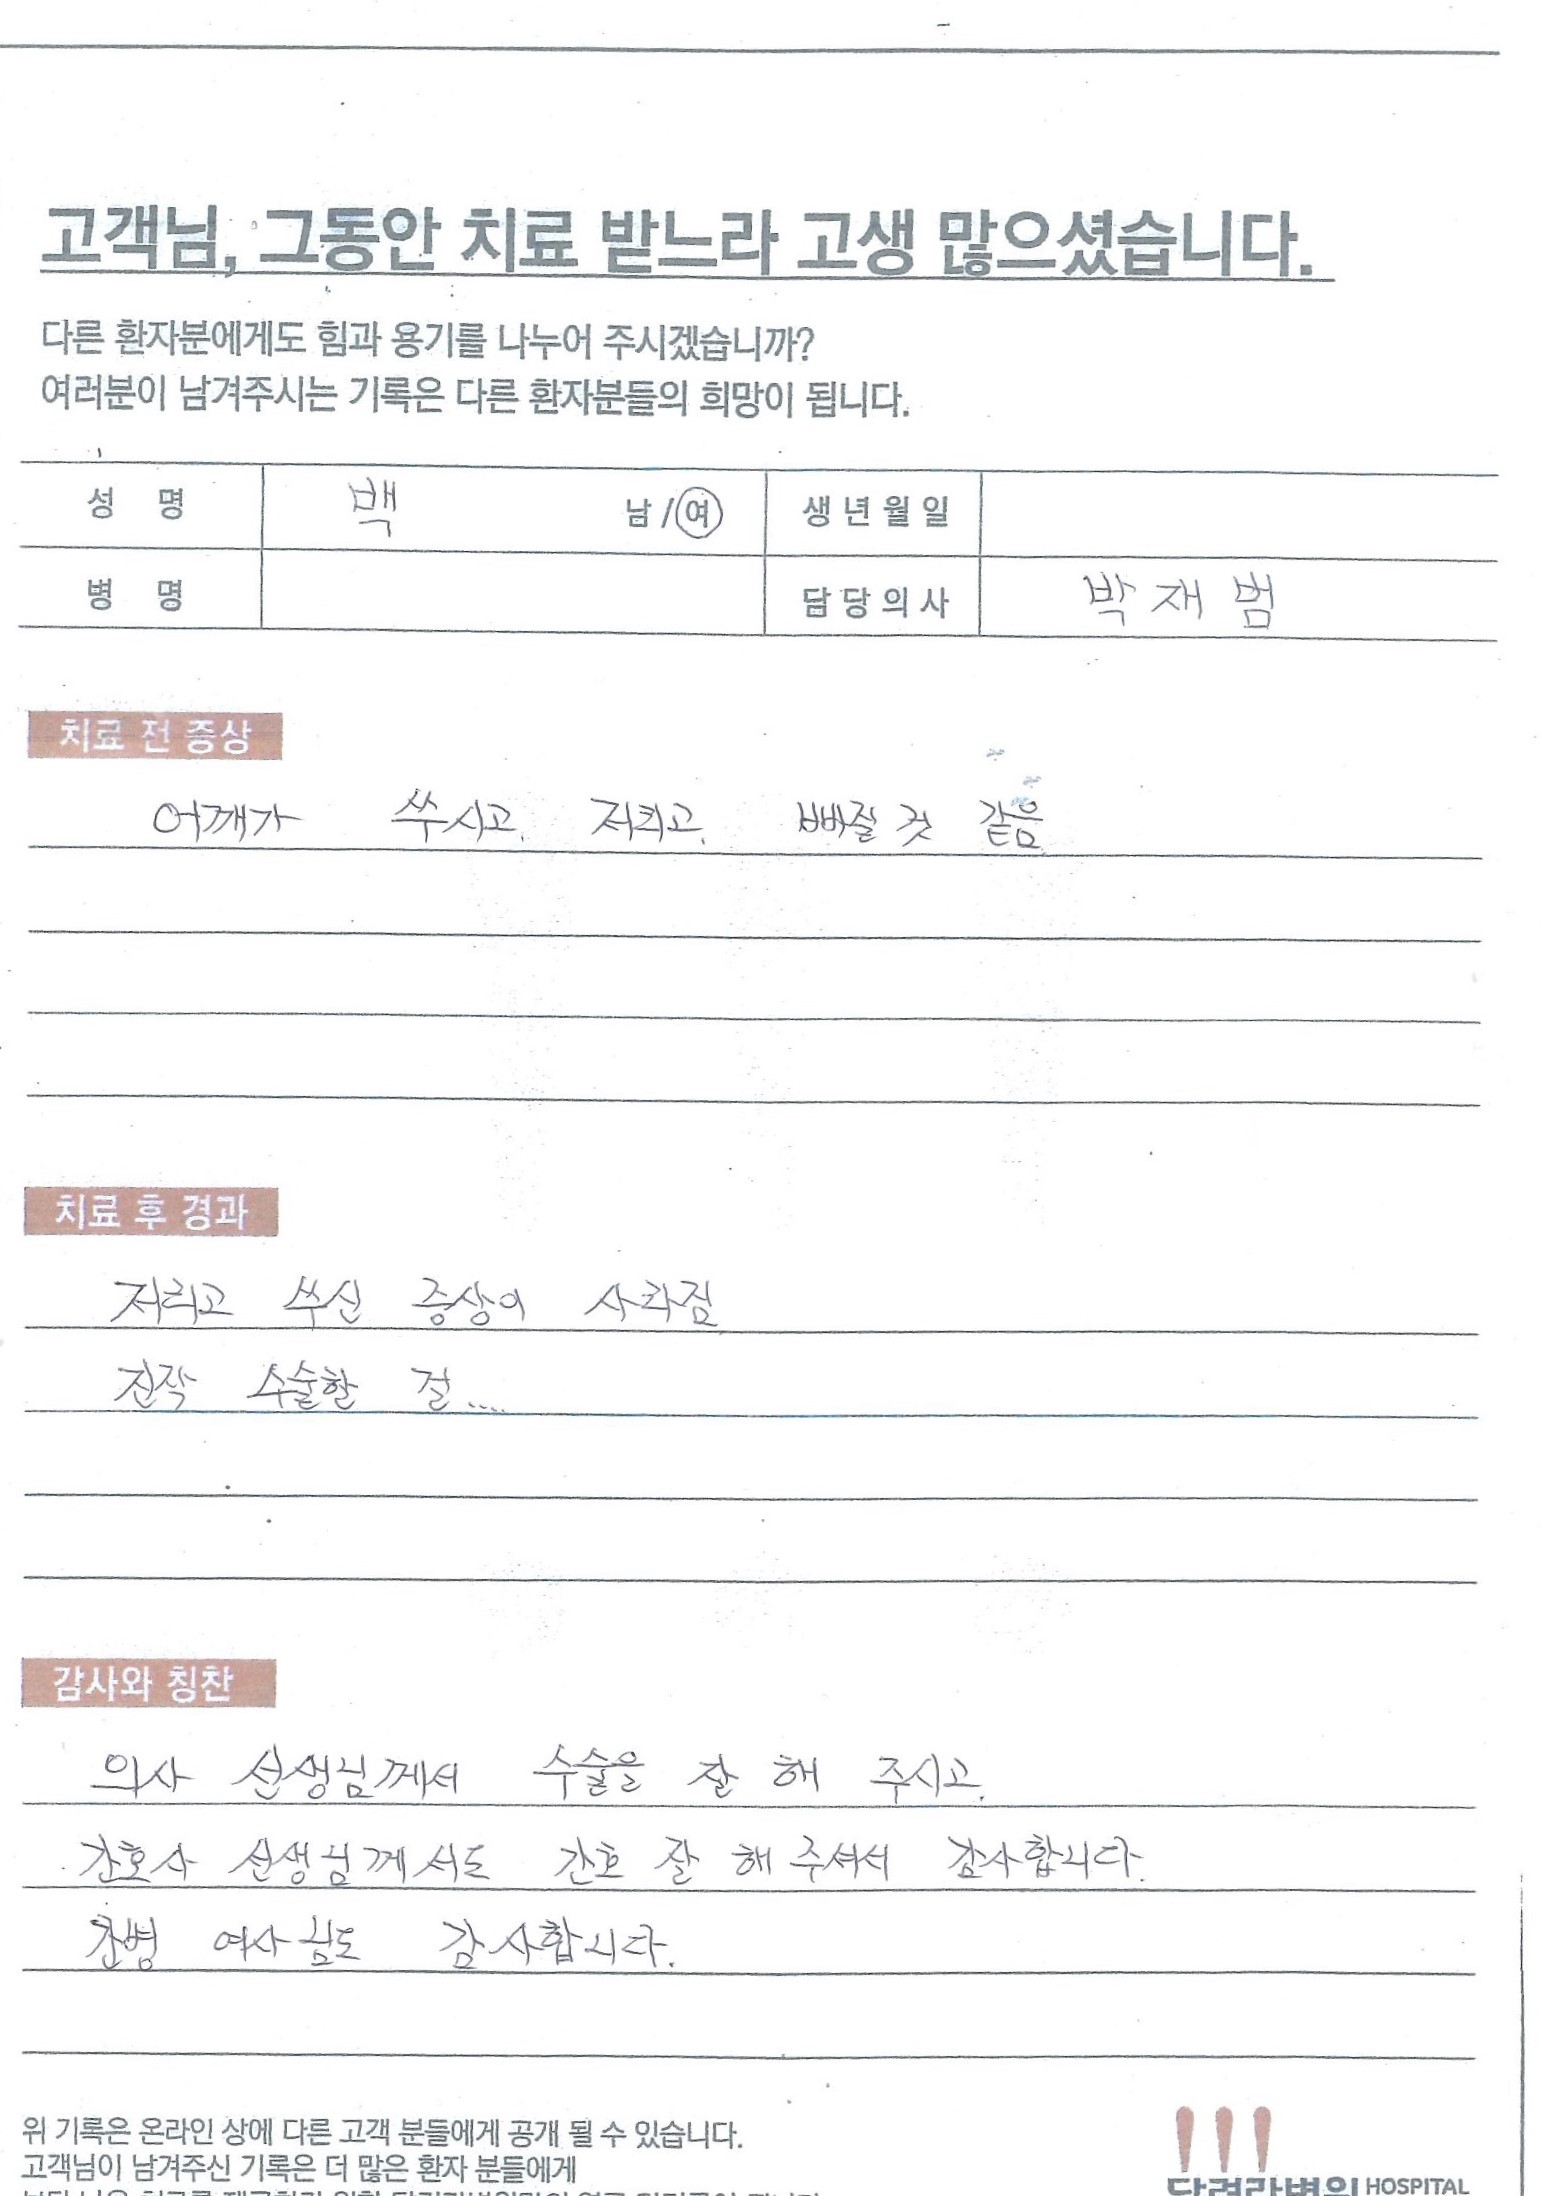 고객님, 그동안 치료 받느라 고생 많으셨습니다.
다른 환자분에게도 힘과 용기를 나누어 주시겠습니까?
여러분이 남겨주시는 기록은 다른 환자분들의 희망이 됩니다.
성 명 백 남/여 생년월일
병 명 담당의사 박재범
치료 전 증상
어깨가 쑤시고, 저리고, 빠질 것 같음
치료 후 경과
저리고 쑤신 증상이 사라짐
진작 수술할 걸....
감사와 칭찬
의사 선생님께서 수술을 잘 해 주시고,
간호사 선생님께서도 간호 잘 해 주셔서 감사합니다.
간병 여사님도 감사합니다.
위 기록은 온라인 상에 다른 고객 분들에게 공개 될 수 있습니다.
고객님이 남겨주신 기록은 더 많은 환자 분들에게
달려라병원 HOSPITAL